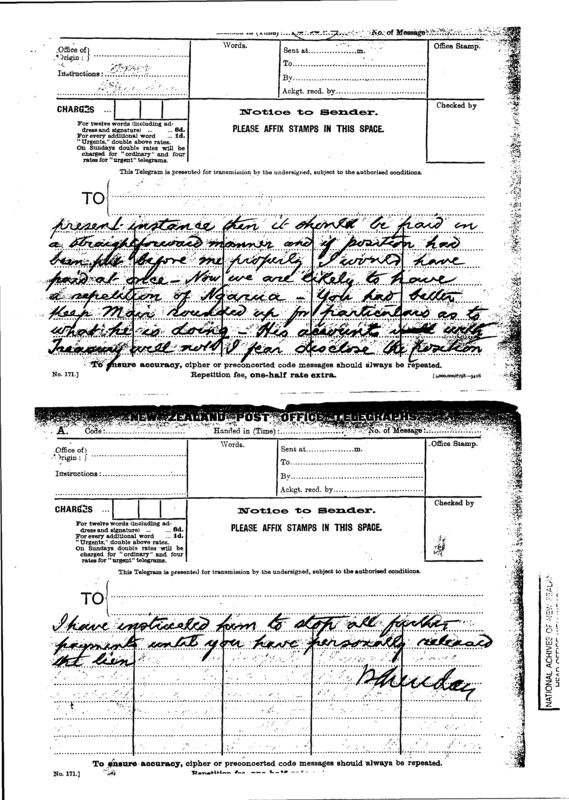 No. of Message
Words.
Office Stamp.
Office of
Origin :
Sent at m.
To
Instructions :
By
Ackgt. recd. by
CHARGES ...
Checked by
Notice to Sender.
For twelve words (including ad-
dress and signature) ... ... 6d.
For every additional word ... 1d.
"Urgents," double above rates.
On Sundays double rates will be
charged for "ordinary" and four
rates for "urgent" telegrams.
PLEASE AFFIX STAMPS IN THIS SPACE.
This Telegram is presented for transmission by the undersigned, subject to the authorised conditions.
TO
present instance then it should be paid in
a straightforward manner and if position had
been put before me properly I would have
paid at once - Now we are likely to have
a repetition of Ngarua - You had better
keep Main rounded up for particulars as to
what he is doing - His accounts with
Treasury will not I fear disclose the position
To ensure accuracy, cipher or preconcerted code messages should always be repeated.
No. 171.]
Repetition fee, one-half rate extra.
NEW ZEALAND POST OFFICE TELEGRAPHS.
A. Code:
Handed in (Time)
No. of Message
Words.
Office Stamp.
Office of
Origin :
Sent at m.
To
Instructions :
By
Ackgt. recd. by
CHARGES ...
Checked by
Notice to Sender.
For twelve words (including ad-
dress and signature) ... ... 6d.
For every additional word ... 1d.
"Urgents," double above rates.
On Sundays double rates will be
charged for "ordinary" and four
rates for "urgent" telegrams.
PLEASE AFFIX STAMPS IN THIS SPACE.
This Telegram is presented for transmission by the undersigned, subject to the authorised conditions.
TO
I have instructed him to stop all further
payments until you have personally released
the lien
To ensure accuracy, cipher or preconcerted code messages should always be repeated.
No. 171.]
Repetition fee, one-half rate
NATIONAL ACHIVES OF NEW ZEALAN
HEAD OFFICE